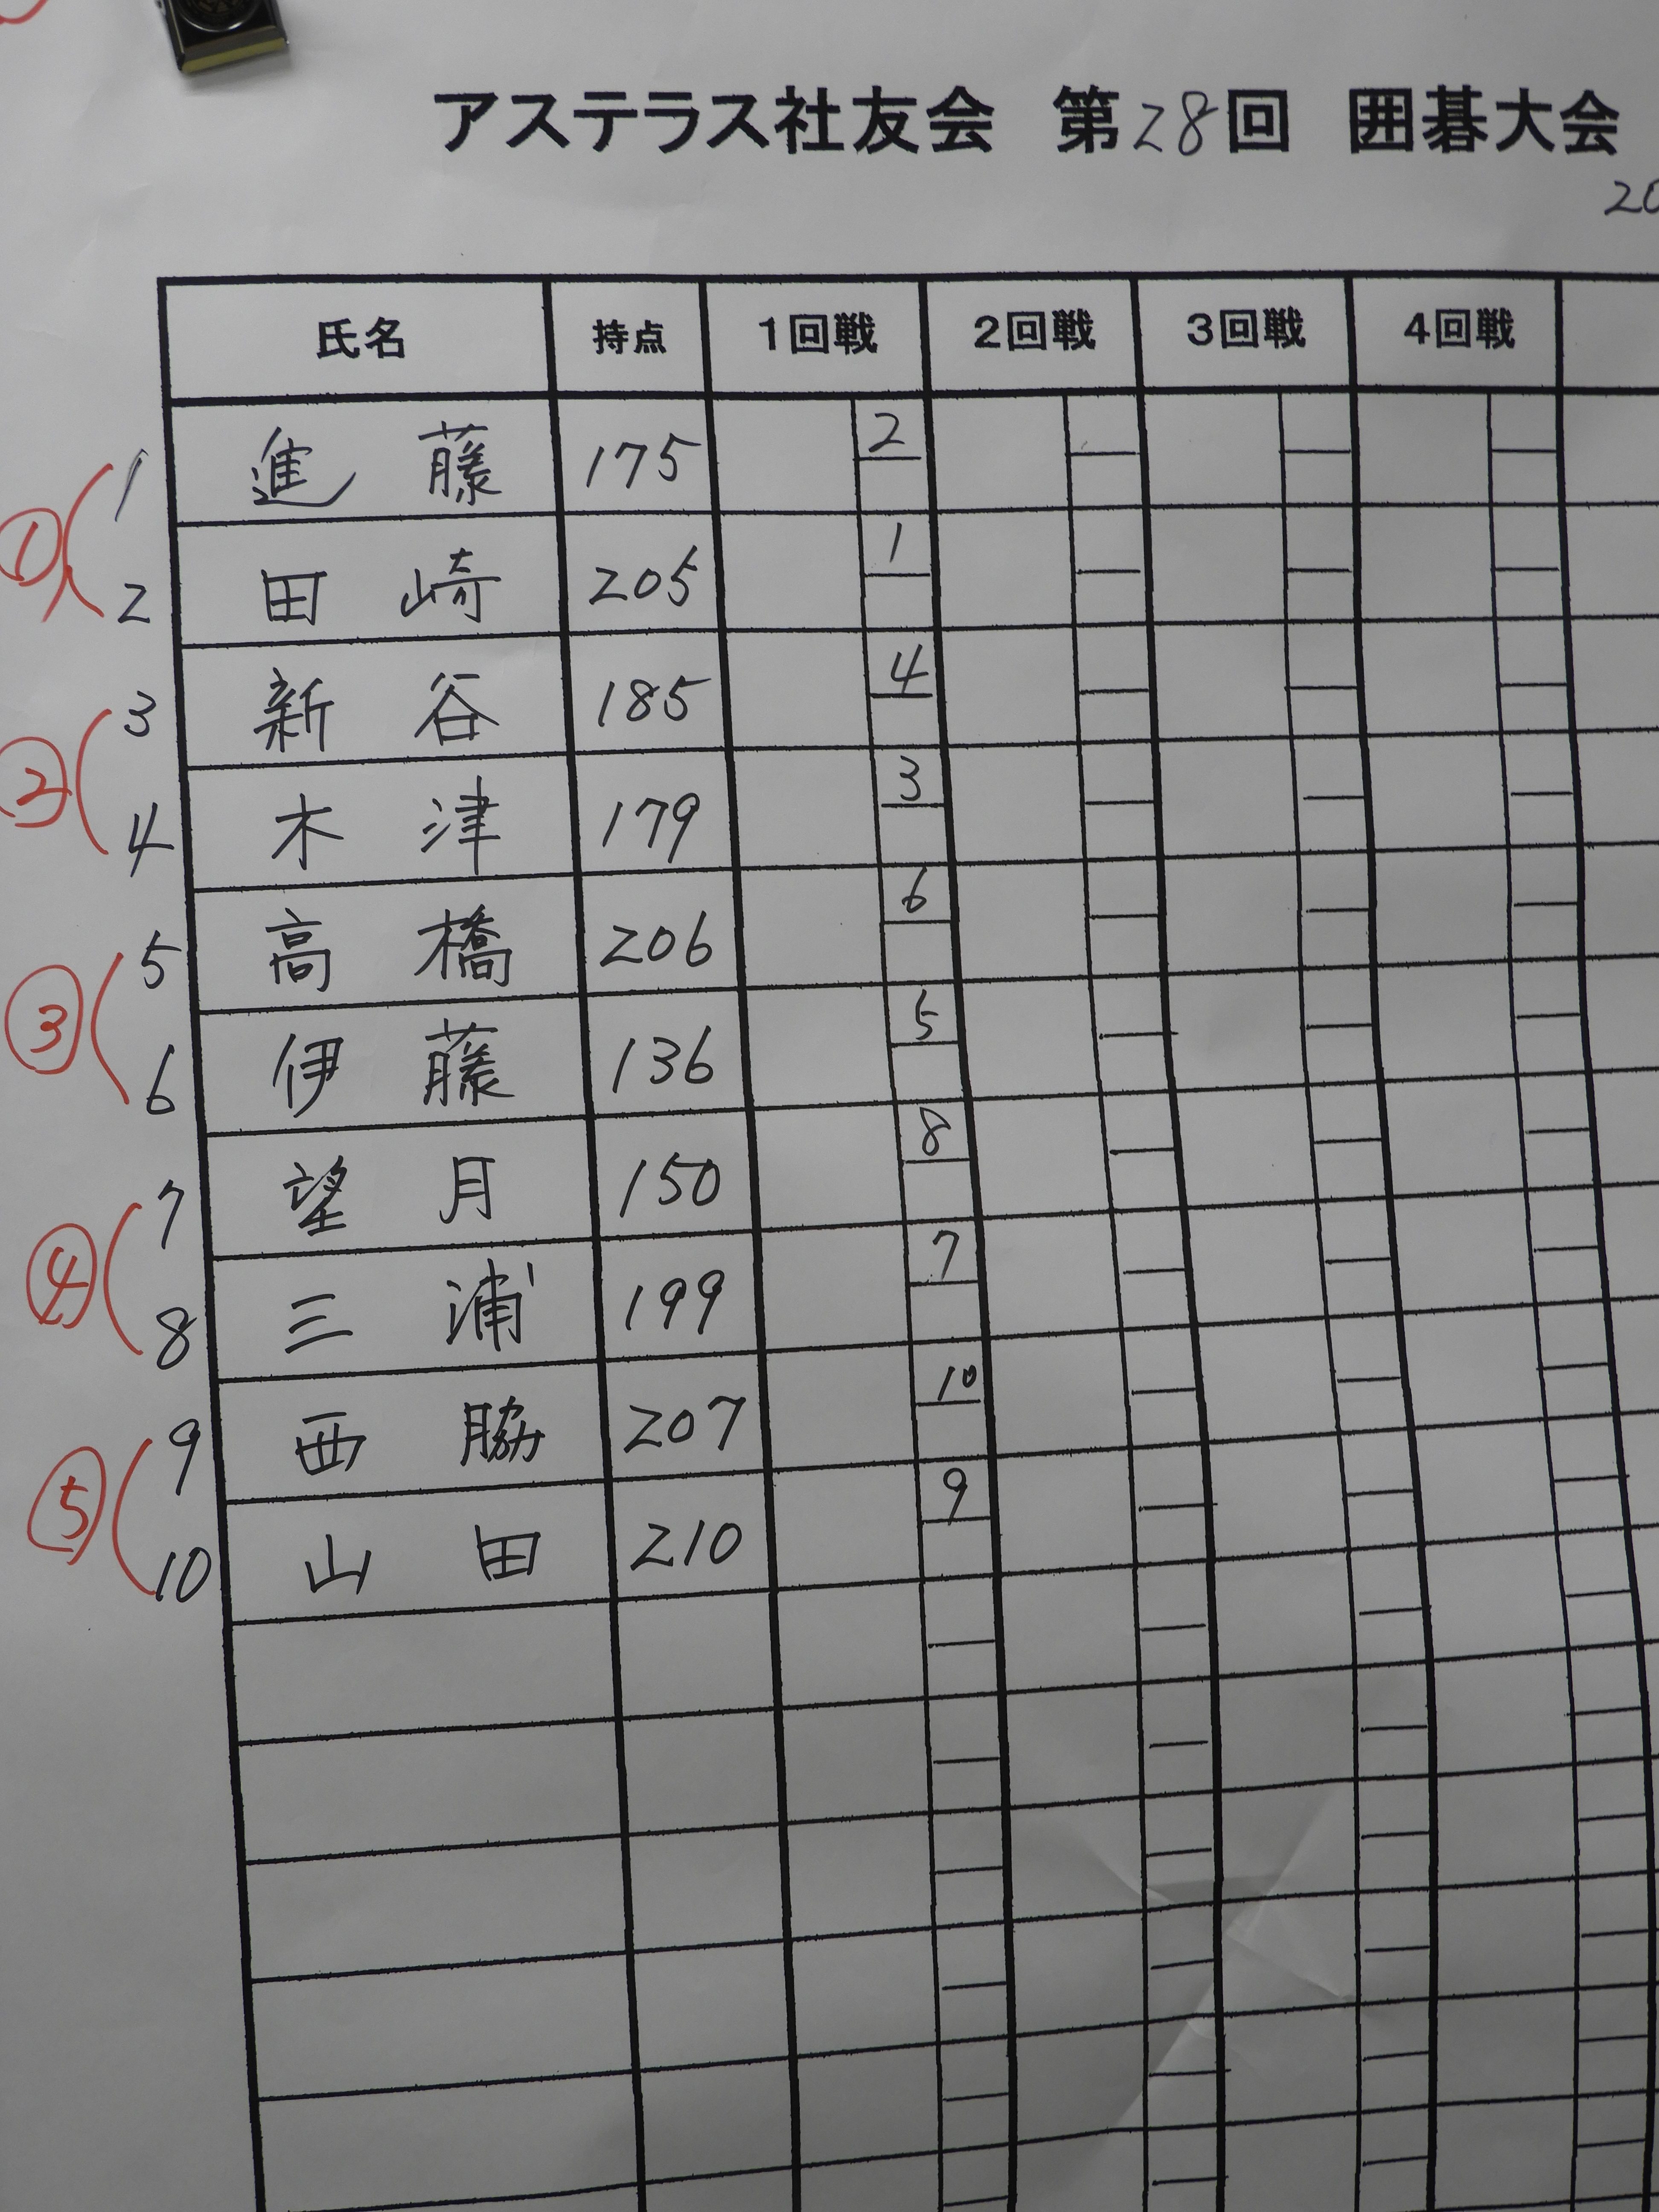 アステラス社友会 第28回 囲碁大会
20
氏名 持点 1回戦 2回戦 3回戦 4回戦
① 1 進藤 175 2
2 田崎 205 1
② 3 新谷 185 4
4 木津 179 3
③ 5 高橋 206 6
6 伊藤 136 5
④ 7 望月 150 8
8 三浦 199 7
⑤ 9 西脇 207 10
10 山田 210 9